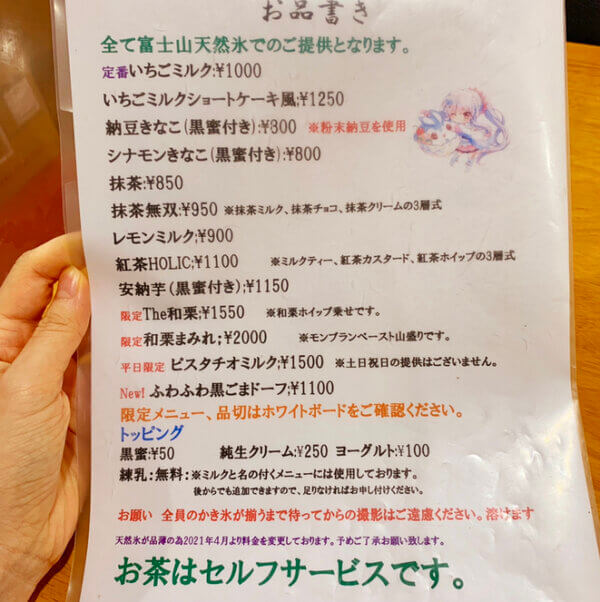 お品書き
全て富士山天然氷でのご提供となります。
定番いちごミルク;¥1000
いちごミルクショートケーキ風;¥1250
納豆きなこ(黒蜜付き):¥800 ※粉末納豆を使用
シナモンきなこ(黒蜜付き):¥800
抹茶:¥850
抹茶無双:¥950 ※抹茶ミルク、抹茶チョコ、抹茶クリームの3層式
レモンミルク;¥900
紅茶HOLIC;¥1100 ※ミルクティー、紅茶カスタード、紅茶ホイップの3層式
安納芋(黒蜜付き);¥1150
限定The和栗;¥1550 ※和栗ホイップ乗せです。
限定 和栗まみれ;¥2000 ※モンブランペースト山盛りです。
平日限定 ピスタチオミルク;¥1500 ※土日祝日の提供はございません。
New! ふわふわ黒ごまドーフ;¥1100
限定メニュー、品切はホワイトボードをご確認ください。
トッピング
黒蜜;¥50 純生クリーム;¥250 ヨーグルト;¥100
練乳:無料:※ミルクと名の付くメニューには使用しております。
後からでも追加できますので、足りなければお申し付けください。
お願い 全員のかき氷が揃うまで待ってからの撮影はご遠慮ください。溶けます
天然氷が品薄の為2021年4月より料金を変更しております。予めご了承お願い致します。
お茶はセルフサービスです。